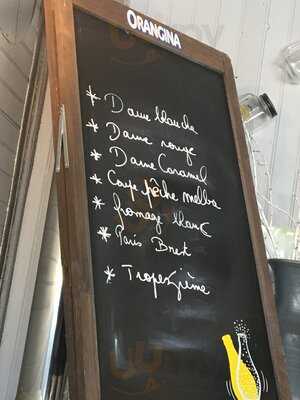 ORANGINA
* Dame blanche
* Dame rouge
* Dame Caramel
* Coupe pêche melba
* fromage blanc
* Paris Brest
* Tropezième